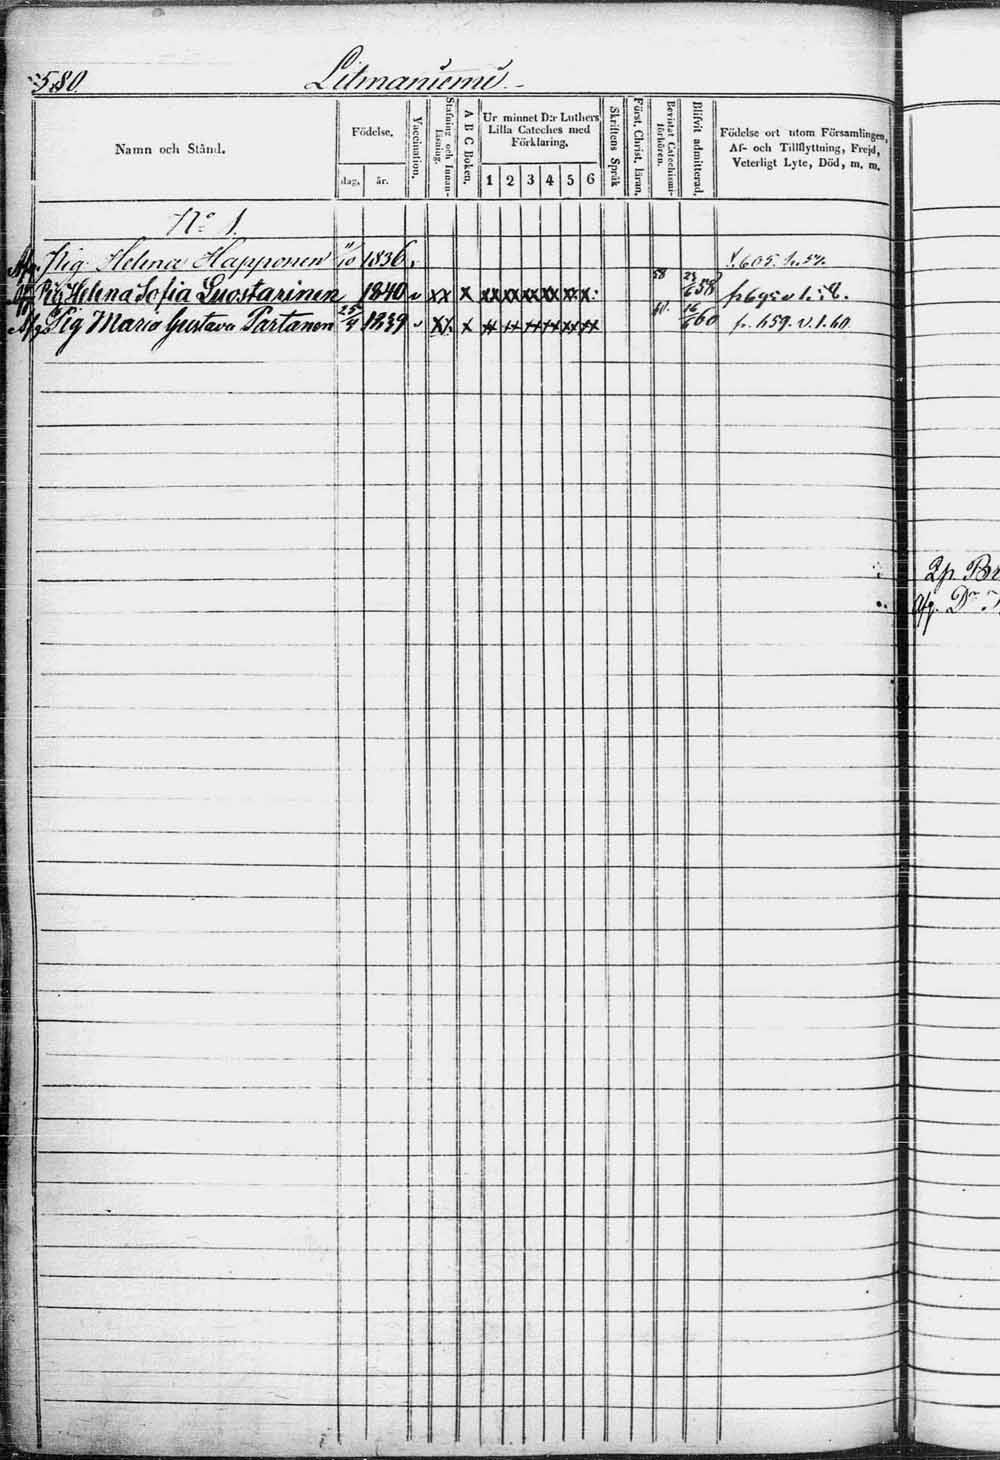 580. Litmaniemi
Namn och Stånd.
Födelse.
dag. år.
Vaccination.
Stafning och Innan-läsning.
A B C Boken.
Ur minnet D:r Luthers
Lilla Cateches med
Förklaring.
1 2 3 4 5 6
Skriftens Språk
Först. Christ. läran.
Bevistat Catechismi-förhören.
Blifvit admitterad.
Födelse ort utom Församlingen,
Af- och Tillflyttning, Frejd,
Veterligt Lyte, Död, m. m.
No 1.
Afg. Pig Helena Happonen 11/10 1836
Afg. Pig Helena Sofia Luostarinen 1840 v xx x xx xx xx xx xx x 58 658
Afg. Pig Maria Gustava Partanen 25/4 1839 v xx x xx xx xx xx xx xx 60. 16/6 60 fr. 659. v. 1. 60
2p. Br
Afg. Dr